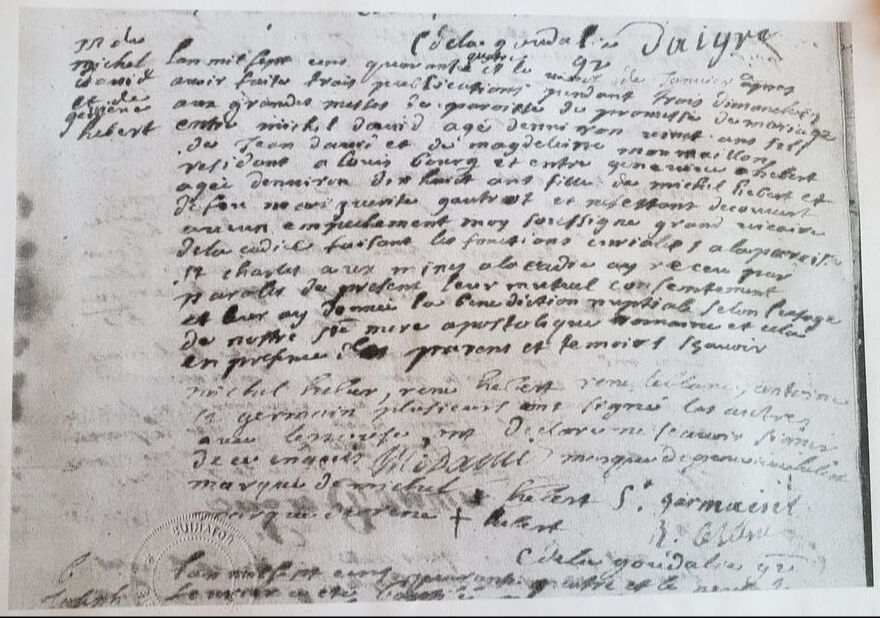 Cdela goudalie gv Daigre
M de
michel
david
et de
geneviene
hebert
lan mil sept cens quarante quatre et le de janvier apres
avoir faite trois publications pendant trois dimanches
aux grandes messes de paroisse de promesse de mariage
entre michel david agé denviron vint ans fils
de Jean david et de magdeleine monmaillon
residant a louis bourg et entre genevieve hebert
agee denviron dix huict ans fille de michel hebert et
defeu marguerite gautrot et nestant decouvert
aucun empechement moy soussigne grand vicaire
dela cadie faisant les fonctions curiales a la paroisse
st charles aux mines a lacadie ay receu par
paroles de present leur mutuel consentement
et leur ay donné la benediction nuptiale selon lusage
de nostre ste mere apostolique Romaine et cela
en presence des parens et temoins scavoir
michel heber, rene hebert rene leblanc, antoine
st germain plusieurs ont signé les autres
avec ont declare ne scavoir signer
de ce enquis MDavid marque de genevieve hebert
marque de michel + hebert St germain
marque de rene + hebert R. leblanc
Cdela goudalie gv
Joseph
lan mil sept cens quarante quatre et le